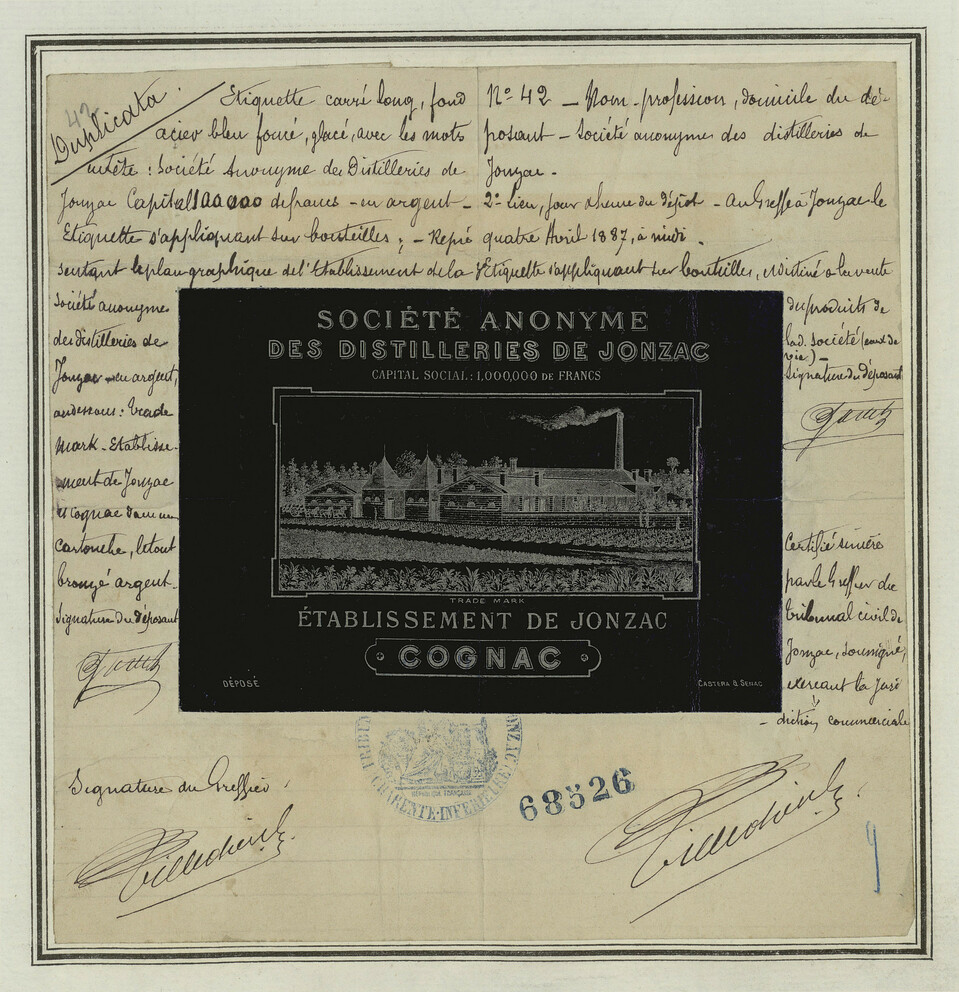 42
Duplicata.
Etiquette carré long, fond
acier bleu foncé, glacé, avec les mots
entête : Société Anonyme des Distilleries de
Jonzac Capital 1 000 000 de francs - en argent -
Etiquette s'appliquant sur bouteilles ; - Repré
sentant le plan graphique de l'Etablissement de la
Société anonyme
des distilleries de
Jonzac - en argent,
au dessous : trade
Mark - Etablisse-
ment de Jonzac
et Cognac dans un
cartouche, le tout
bronzé argent -
Signature du déposant
Signature du Greffier.
N° 42 - Nom - profession, domicile du dé-
posant - Société anonyme des distilleries de
Jonzac -
2° Lieu, jour & heure du dépôt - Au Greffe à Jonzac le
quatre Avril 1887, à midi.
Etiquette s'appliquant sur bouteilles, destiné à la vente
des produits de
lad. société (eaux de
vie.) -
Signature du déposant
Certifié sincère
par le Greffier du
tribunal civil de
Jonzac, soussigné,
exerçant la juri
- diction commerciale
SOCIÉTÉ ANONYME
DES DISTILLERIES DE JONZAC
CAPITAL SOCIAL : 1,000,000 DE FRANCS
TRADE MARK
ÉTABLISSEMENT DE JONZAC
COGNAC
DÉPOSÉ
CASTERA & SENAC
RÉPUBLIQUE FRANÇAISE
CHARENTE-INFERIEURE
68526